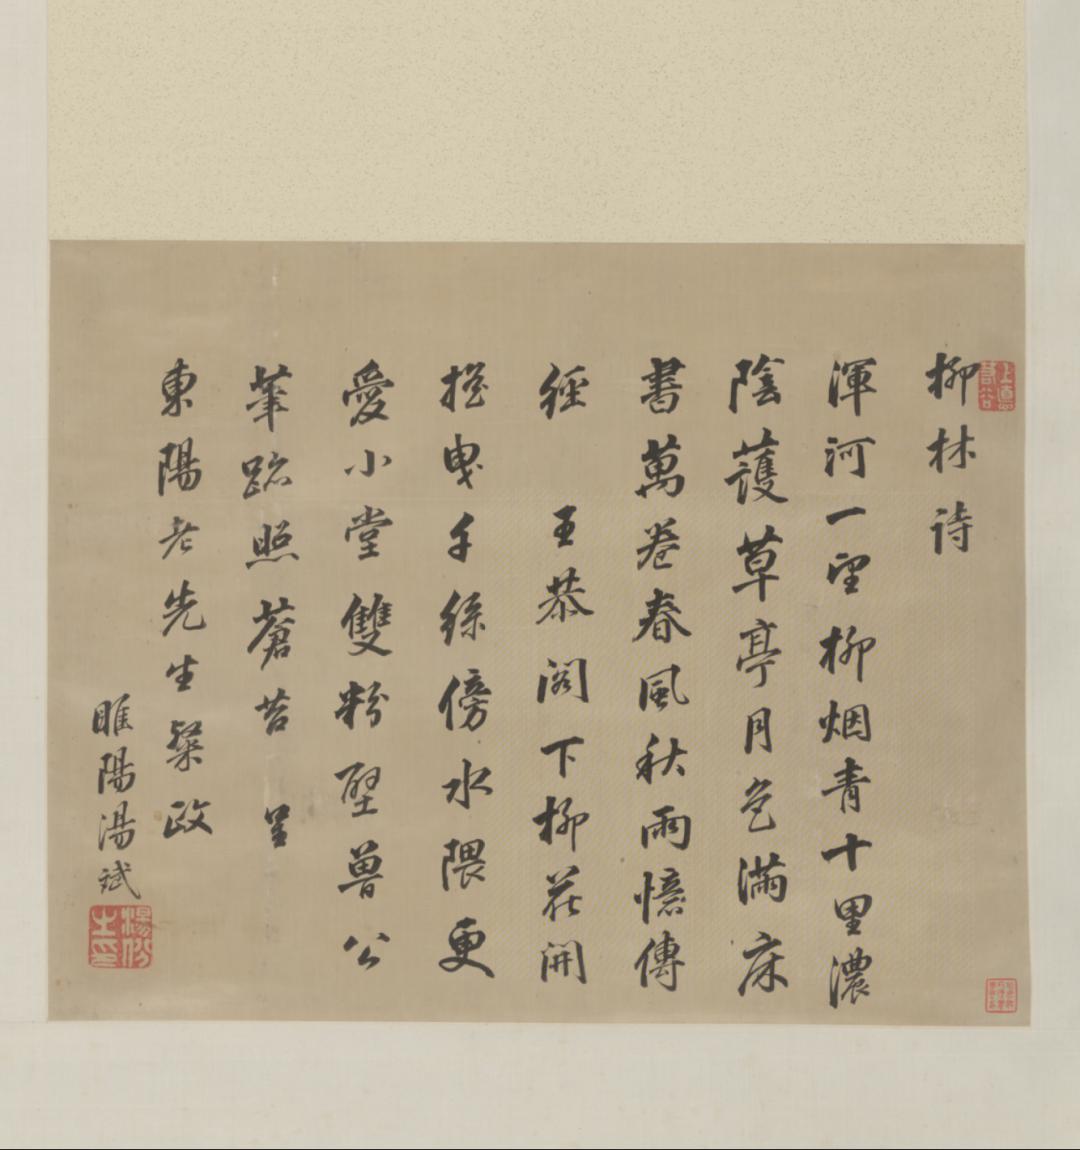 柳林诗
渾河一望柳烟青十里濃
陰護草亭月色滿床
書萬卷春風秋雨憶傳
經 王恭阁下柳花開
搖曳千絲傍水隈更
愛小堂雙粉壁曾公
筆跡照蒼苔 呈
東陽老先生粲政
睢陽湯斌